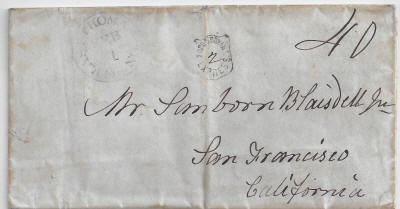 40
2
Mr Sanborn Blaisdell Jr
San Francisco
California